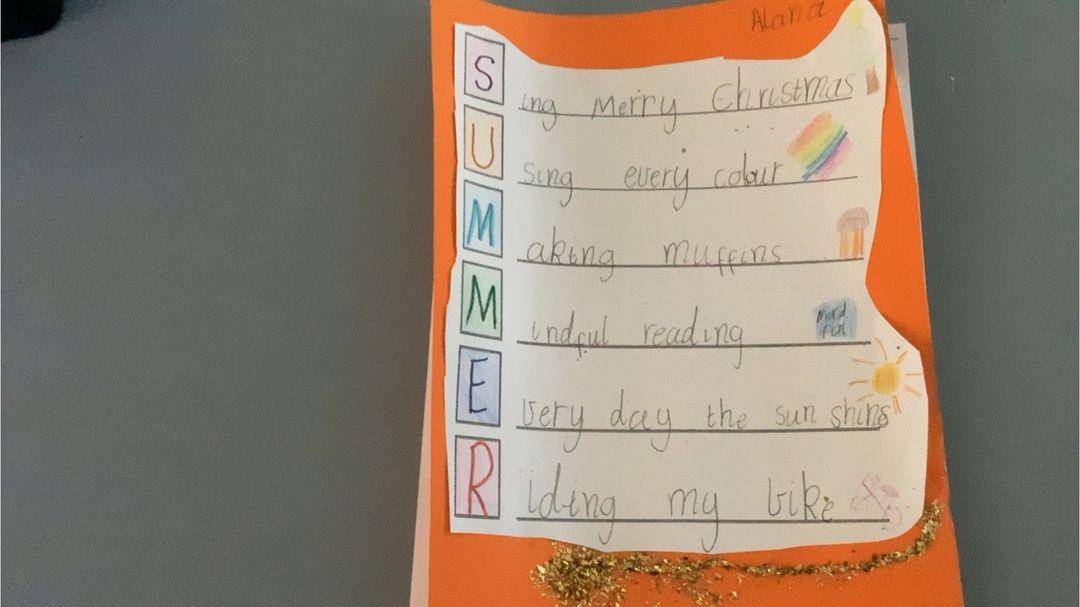 Alana
Sing Merry Christmas
Using every colour
Making muffins
Mindful reading
mind
ful
Every day the sun shins
Riding my bike